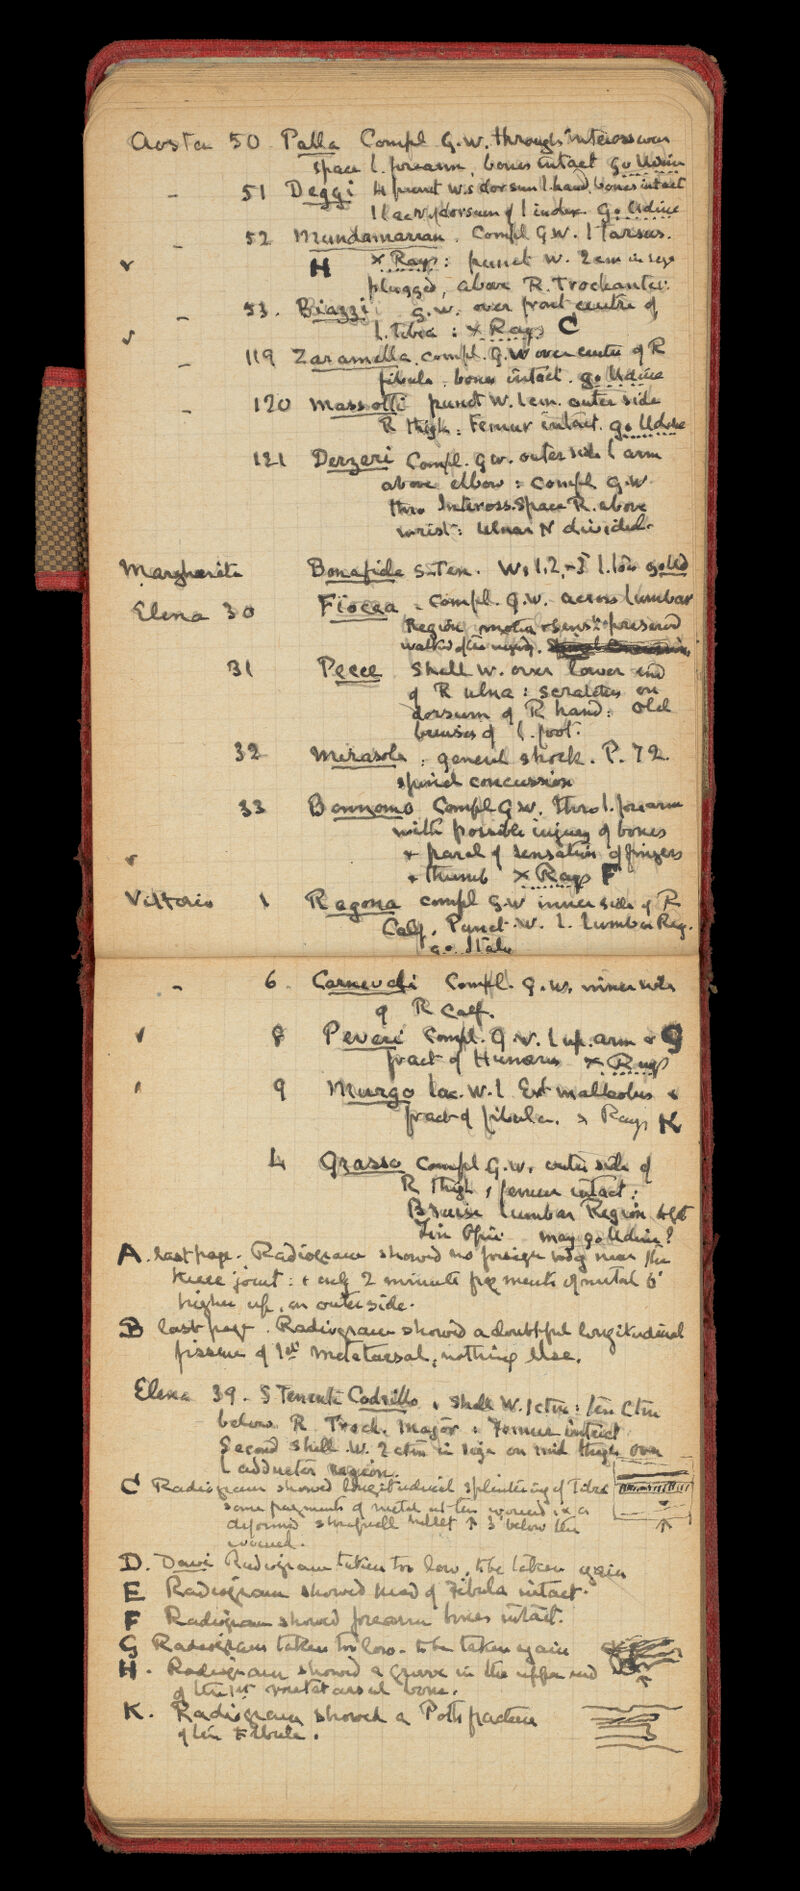 Aosta 50 Palla Compl G.W. through interosseous
space l. forearm, bones intact go Udine
- 51 Deggi 4 punct w.s dorsum l. hand, bones intact
1 lac w/ dorsum of l index. go Udine
- 52 Mundamarian. Compl G.W. l Tarsus.
✓ H X Rays: punct W. 2 cm in size
plugged, above R. Trochanter.
- 53. Biazzi G.W. over front centre of
✓ l. tibia: X Rays C
- 119 Zaramella compl. G.W over centre of R
fibula, bones intact. go Udine
- 120 Massotti punct W. 1 cm. outer side
R thigh: Femur intact. go Udine
121 Derzeri Compl. G.W. outer side l arm
above elbow: Compl G.W
thro Inteross. Space R. above
wrist: Ulnar N divided.
Margherita Bonafide S. Ten. W. 1, 2, l.
Elena 30 Fiocca. Compl. G.W. across Lumbar
Region, motion & sens preserved
31 Pecce Shell W. over lower end
of R ulna: scratches on
dorsum of R hand: Old
bruises of l. foot.
32 Mirasole: general shock. P. 72.
spinal concussion
33 Bonnomo Compl G.W. thro l. forearm
with possible injury of bones
✓ + paral of sensation of fingers
+ thumb X Rays F
Vittorio 1 Ragona compl G.W inner side of R
Calf. Punct. W. L. Lumbar Reg.
go Italy
- 6 Carnevali Compl. G.W. inner side
of R Calf.
✓ 8 Peveri Compl. G.W. l up. arm + G
fract of Humerus X Rays
9 Murgo lac. W. l Ext malleolus +
fract of fibula. X Rays K
4 Grasso Compl G.W. outer side of
R thigh, femur intact:
Bruise Lumbar Region left
may go Udine?
A. last page. Radiogram showed no foreign body near the
knee joint: + only 2 minute fragments of metal 6"
higher up, on outer side.
B last page. Radiogram showed a doubtful longitudinal
fissure of 1st metatarsal, nothing else.
Elena 39. S Tenente Codrillo, Shell W. 1 ctm: ten Ctm
below R Troch. Major: Femur intact
Second shell W. 2 ctm in size on mid thigh over
l adductor region.
C Radiogram showed longitudinal splintering of Tibia
some fragments of metal at the wound, & a
deformed shrapnell bullet 3" below the
wound.
D. Davi Radiogram taken too low, to be taken again
E Radiogram showed head of Fibula intact.
F Radiogram showed forearm bones intact.
G Radiogram taken too low. to be taken again
H. Radiogram showed a groove in the upper end
of the 1st metatarsal bone.
K. Radiogram showed a Potts fracture
of the Fibula.